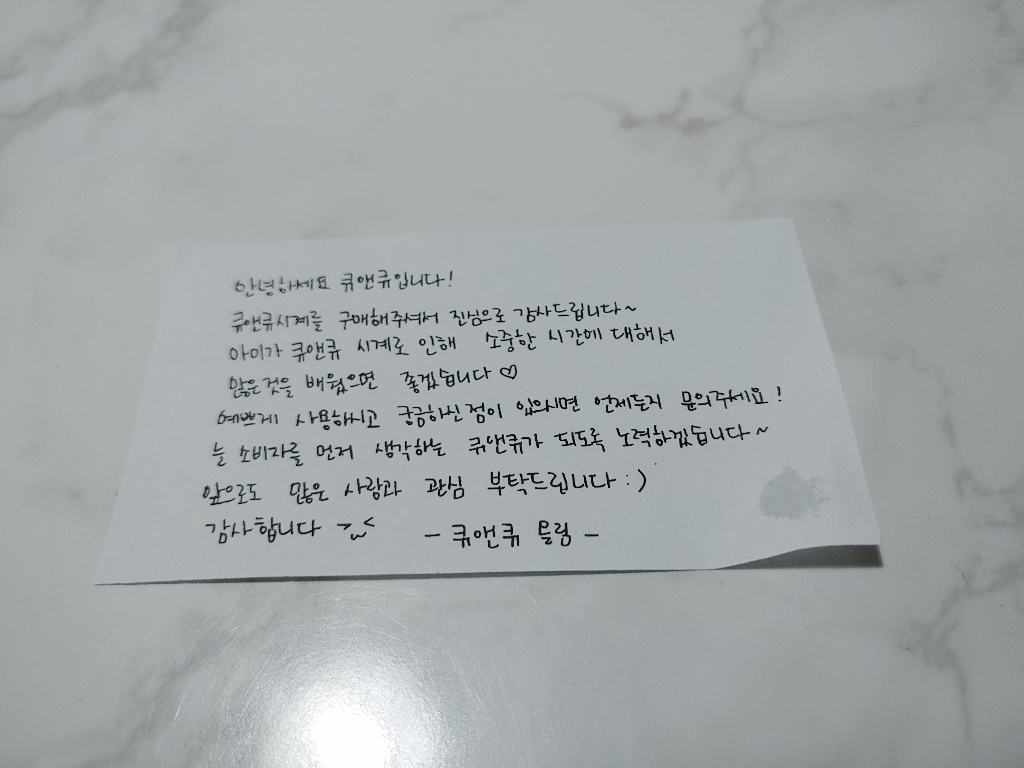 안녕하세요 큐앤큐입니다!
큐앤큐시계를 구매해주셔서 진심으로 감사드립니다~
아이가 큐앤큐 시계로 인해 소중한 시간에 대해서
많은것을 배웠으면 좋겠습니다♡
예쁘게 사용하시고 궁금하신점이 있으시면 언제든지 문의주세요!
늘 소비자를 먼저 생각하는 큐앤큐가 되도록 노력하겠습니다~
앞으로도 많은 사랑과 관심 부탁드립니다 :)
감사합니다 >~<
- 큐앤큐 드림 -